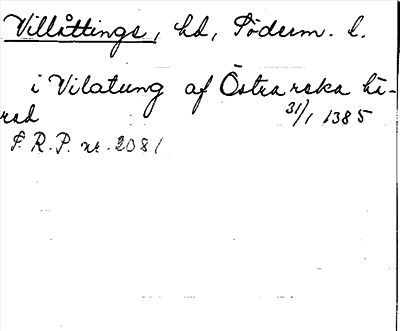 Villåttings, hd, Söderm. l.
i Vilatung af Östra reka hä-
rad 31/1 1385
S. R. P. nr. 2081